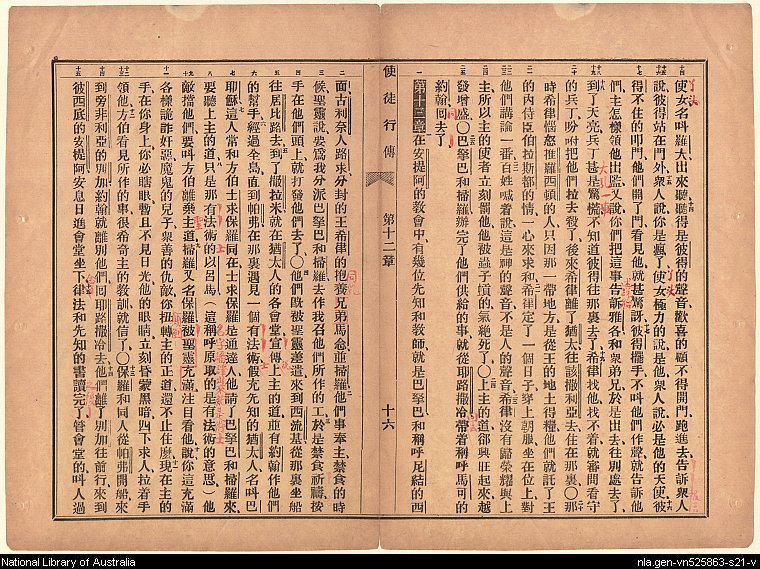 使女名叫羅大出來聽聽得是彼得的聲音歡喜的顧不得開門跑進去告訴衆人
說彼得站在門外衆人說你是瘋了使女極力的說是他衆人說必是他的天使彼
得不住的叩門他們開了門看見他就甚驚訝彼得擺手不叫他們作聲就告訴他
們主怎樣領他出監又說你們把這事告訴雅各和衆弟兄於是出去往別處去了
到了天亮兵丁甚是驚慌不知道彼得往那裏去了希律找他找不着就審問看守
的兵丁吩咐把他們拉去殺了後來希律離了猶太往該撒利亞去住在那裏〇那
時希律惱怒推羅西頓的人只因那一帶地方是從王的地土得糧他們就託了王
的內侍臣伯拉斯都的情一心來求和希律定了一個日子穿上朝服坐在位上對
他們講論一番百姓喊着說這是神的聲音不是人的聲音希律沒有歸榮耀與上
主所以主的使者立刻罰他他被蟲子嘬的氣絶死了〇上主的道卻興旺起來越
發增盛〇巴拏巴和掃羅辦完了他們供給的事就從耶路撒冷帶着稱呼馬可的
約翰回去了
第十三章在安提阿的教會中有幾位先知和教師就是巴拏巴和稱呼尼結的西
使徒行傳 第十二章 十六
面古利奈人路求分封的王希律的抱養兄弟馬念並掃羅他們事奉主禁食的時
候聖靈說要爲我分派巴拏巴和掃羅去作我召他們所作的工於是禁食祈禱按
手在他們頭上就打發他們去了〇他們既被聖靈差遣來到西流基從那裏坐船
往居比路去到了撒拉米就在猶太人的各會堂宣傳上主的道並有約翰作他們
的幫手經過全島直到帕弗在那裏遇見一個有法術假充先知的猶太人名叫巴
耶穌這人常和方伯士求保羅同在士求保羅是通達人他請了巴拏巴和掃羅來
要聽上主的道只是那有法術的以呂馬（這稱呼原取的是有法術的意思）他
敵擋他們要叫方伯離棄主道掃羅又名保羅被聖靈充滿注目看他說你這充滿
各樣詭詐奸惡魔鬼的兒子衆善的仇敵你扭轉主的正道還不止住麼現在主的
手在你身上你必瞎眼暫且不見日光他的眼睛立刻昏蒙黑暗四下求人拉着手
領他方伯看見所作的事很希奇主的教訓就信了〇保羅和同人從帕弗開船來
到旁非利亞的別加約翰就離別他們回耶路撒冷去他們離了別加往前行來到
彼西底的安提阿安息日進會堂坐下律法和先知的書讀完了管會堂的叫人過
National Library of Australia
nla.gen-vn525863-s21-v